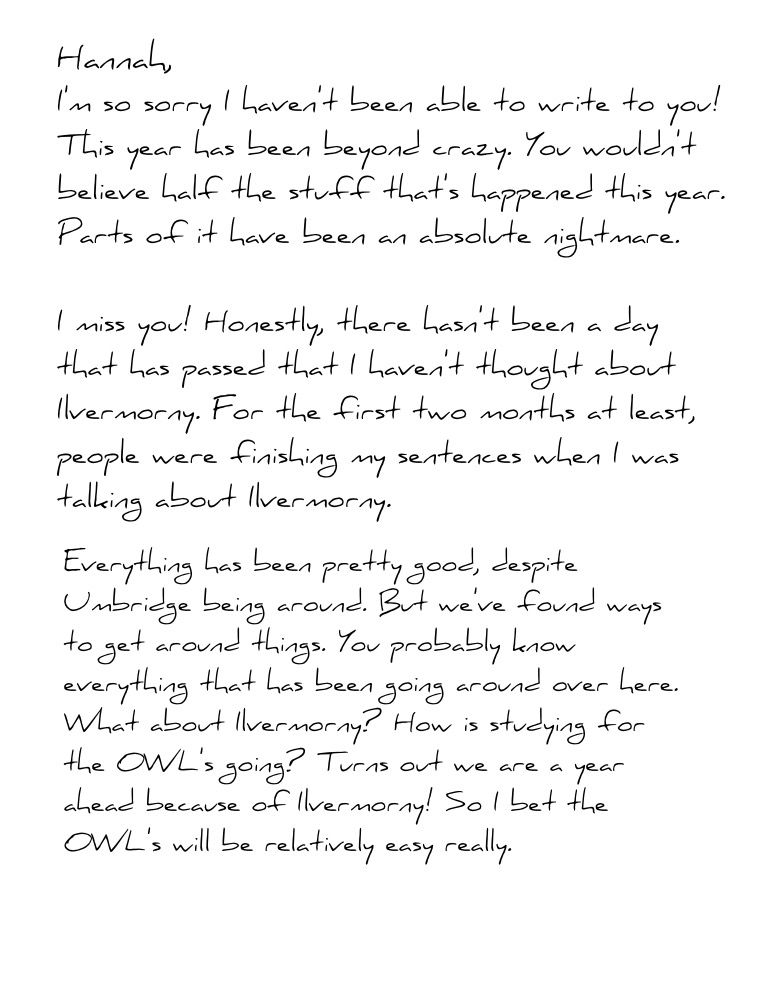 Hannah,
I'm so sorry I haven't been able to write to you!
This year has been beyond crazy. You wouldn't
believe half the stuff that's happened this year.
Parts of it have been an absolute nightmare.
I miss you! Honestly, there hasn't been a day
that has passed that I haven't thought about
Ilvermorny. For the first two months at least,
people were finishing my sentences when I was
talking about Ilvermorny.
Everything has been pretty good, despite
Umbridge being around. But we've found ways
to get around things. You probably know
everything that has been going around over here.
What about Ilvermorny? How is studying for
the OWL's going? Turns out we are a year
ahead because of Ilvermorny! So I bet the
OWL's will be relatively easy really.